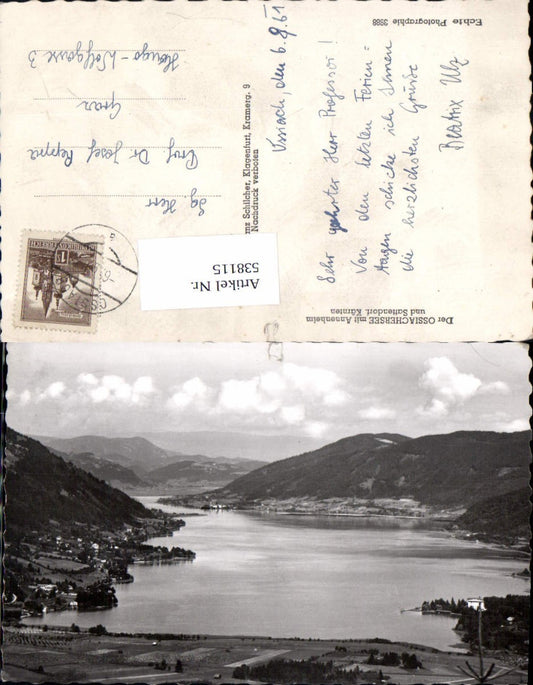 Der OSSIACHERSEE mit Annenheim
und Sattendorf. Kärnten
Ossiach, den 6.9.61
Sehr geehrter Herr Professor!
Von den letzten Ferien-
tagen schicke ich Ihnen
die herzlichsten Grüße
Beatrix Ulz
Echte Photographie 3988
Franz Schilcher, Klagenfurt, Kramerg. 9
Nachdruck verboten
REPUBLIK ÖSTERREICH
Sg. Herr
Prof. Dr. Josef Peppe
Graz
Hugo-Wolfgasse 3
Artikel Nr.
538115